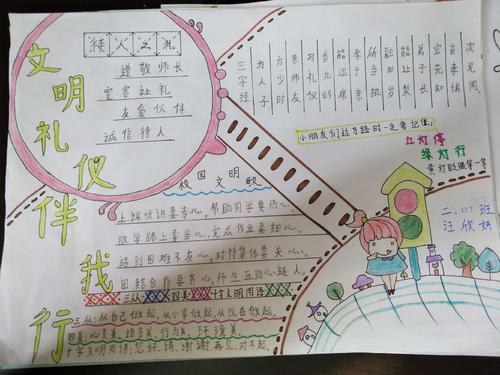 文明礼仪伴我行
待人之礼
尊敬师长
宽容礼让
友爱伙伴
诚信待人
三字经
为人子
方少时
亲师友
习礼仪
香九龄
能温席
孝于亲
所当执
融四岁
能让梨
弟于长
宜先知
首孝悌
次见闻
小朋友们过马路时一定要记住:
红灯停
绿灯行
黄灯眨眼等一等
二、(1)班
校园文明歌
上课听讲要专心,帮助同学要热心。
放学路上要当心,完成作业要细心。
遇到困难不灰心,对待集体要关心。
团结合作要齐心,师生互助心连心。
三从四美十字文明用语
三从:从自己做起,从小事做起,从现在做起。
四美:心灵美、语言美、行为美、环境美。
十字文明用语:您好、请、谢谢、再见、对不起。